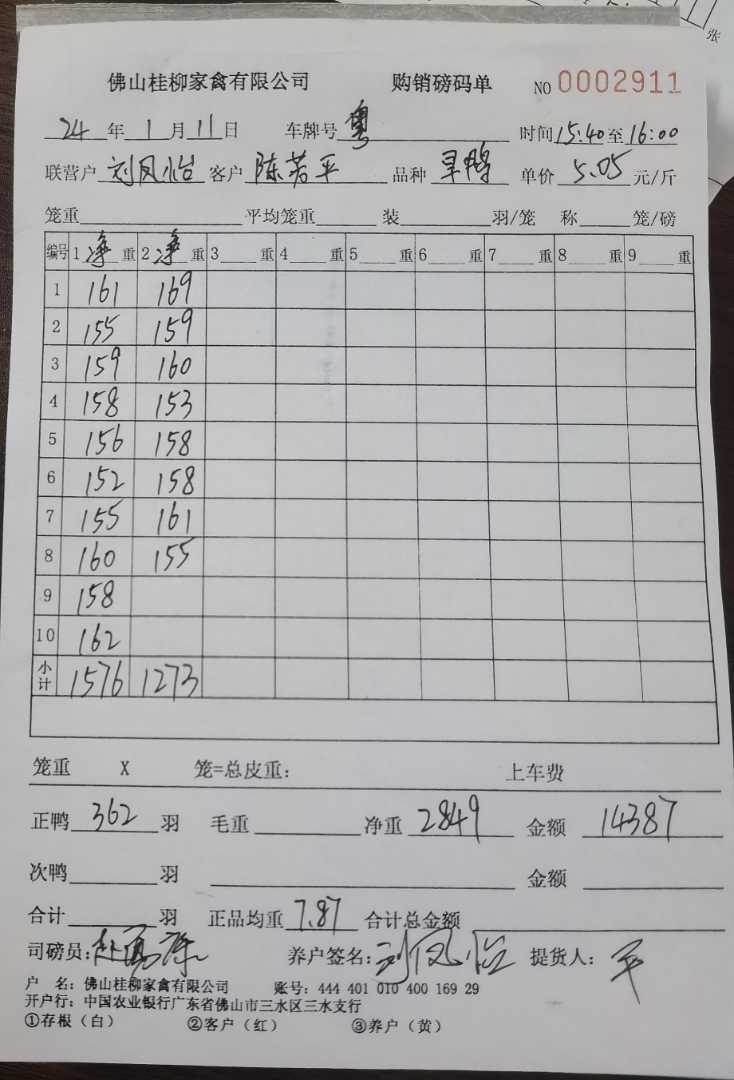 张
佛山桂柳家禽有限公司 购销磅码单 NO 0002911
24年1月11日 车牌号 粤 时间15:40至16:00
联营户 刘凤怡 客户 陈若平 品种 旱鸭 单价 5.05 元/斤
笼重 平均笼重 装 羽/笼 称 笼/磅
编号 1 净 重 2 净 重 3 重 4 重 5 重 6 重 7 重 8 重 9 重
1 161 169
2 155 159
3 159 160
4 158 153
5 156 158
6 152 158
7 155 161
8 160 155
9 158
10 162
小计 1576 1273
笼重 X 笼=总皮重： 上车费
正鸭 362 羽 毛重 净重 2849 金额 14387
次鸭 羽 金额
合计 羽 正品均重 7.87 合计总金额
司磅员： 养户签名：刘凤怡 提货人：平
户 名：佛山桂柳家禽有限公司 账号：444 401 010 400 169 29
开户行：中国农业银行广东省佛山市三水区三水支行
①存根（白） ②客户（红） ③养户（黄）